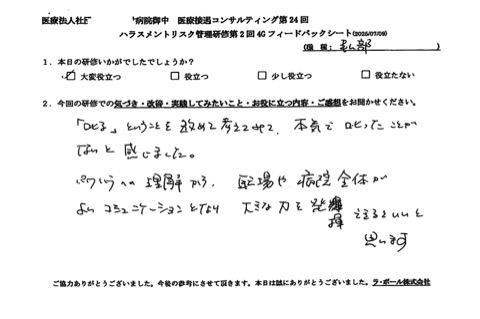 医療法人社団 病院御中 医療接遇コンサルティング第24回
ハラスメントリスク管理研修第2回4Gフィードバックシート(2025/07/09)
(職 種: 部)
1.本日の研修いかがでしたでしょうか?
☑ 大変役立つ □ 役立つ □ 少し役立つ □ 役立たない
2.今回の研修での気づき・改善・実践してみたいこと・お役に立つ内容・ご感想をお聞かせください。
「叱る」ということを改めて考えてみて、本気で叱ったことが
ないと感じました。
パワハラへの理解から、職場や病院全体が
よいコミュニケーションとなり 大きな力を発揮
できるといいと
思います
ご協力ありがとうございました。今後の参考にさせて頂きます。本日は誠にありがとうございました。ラ・ポール株式会社